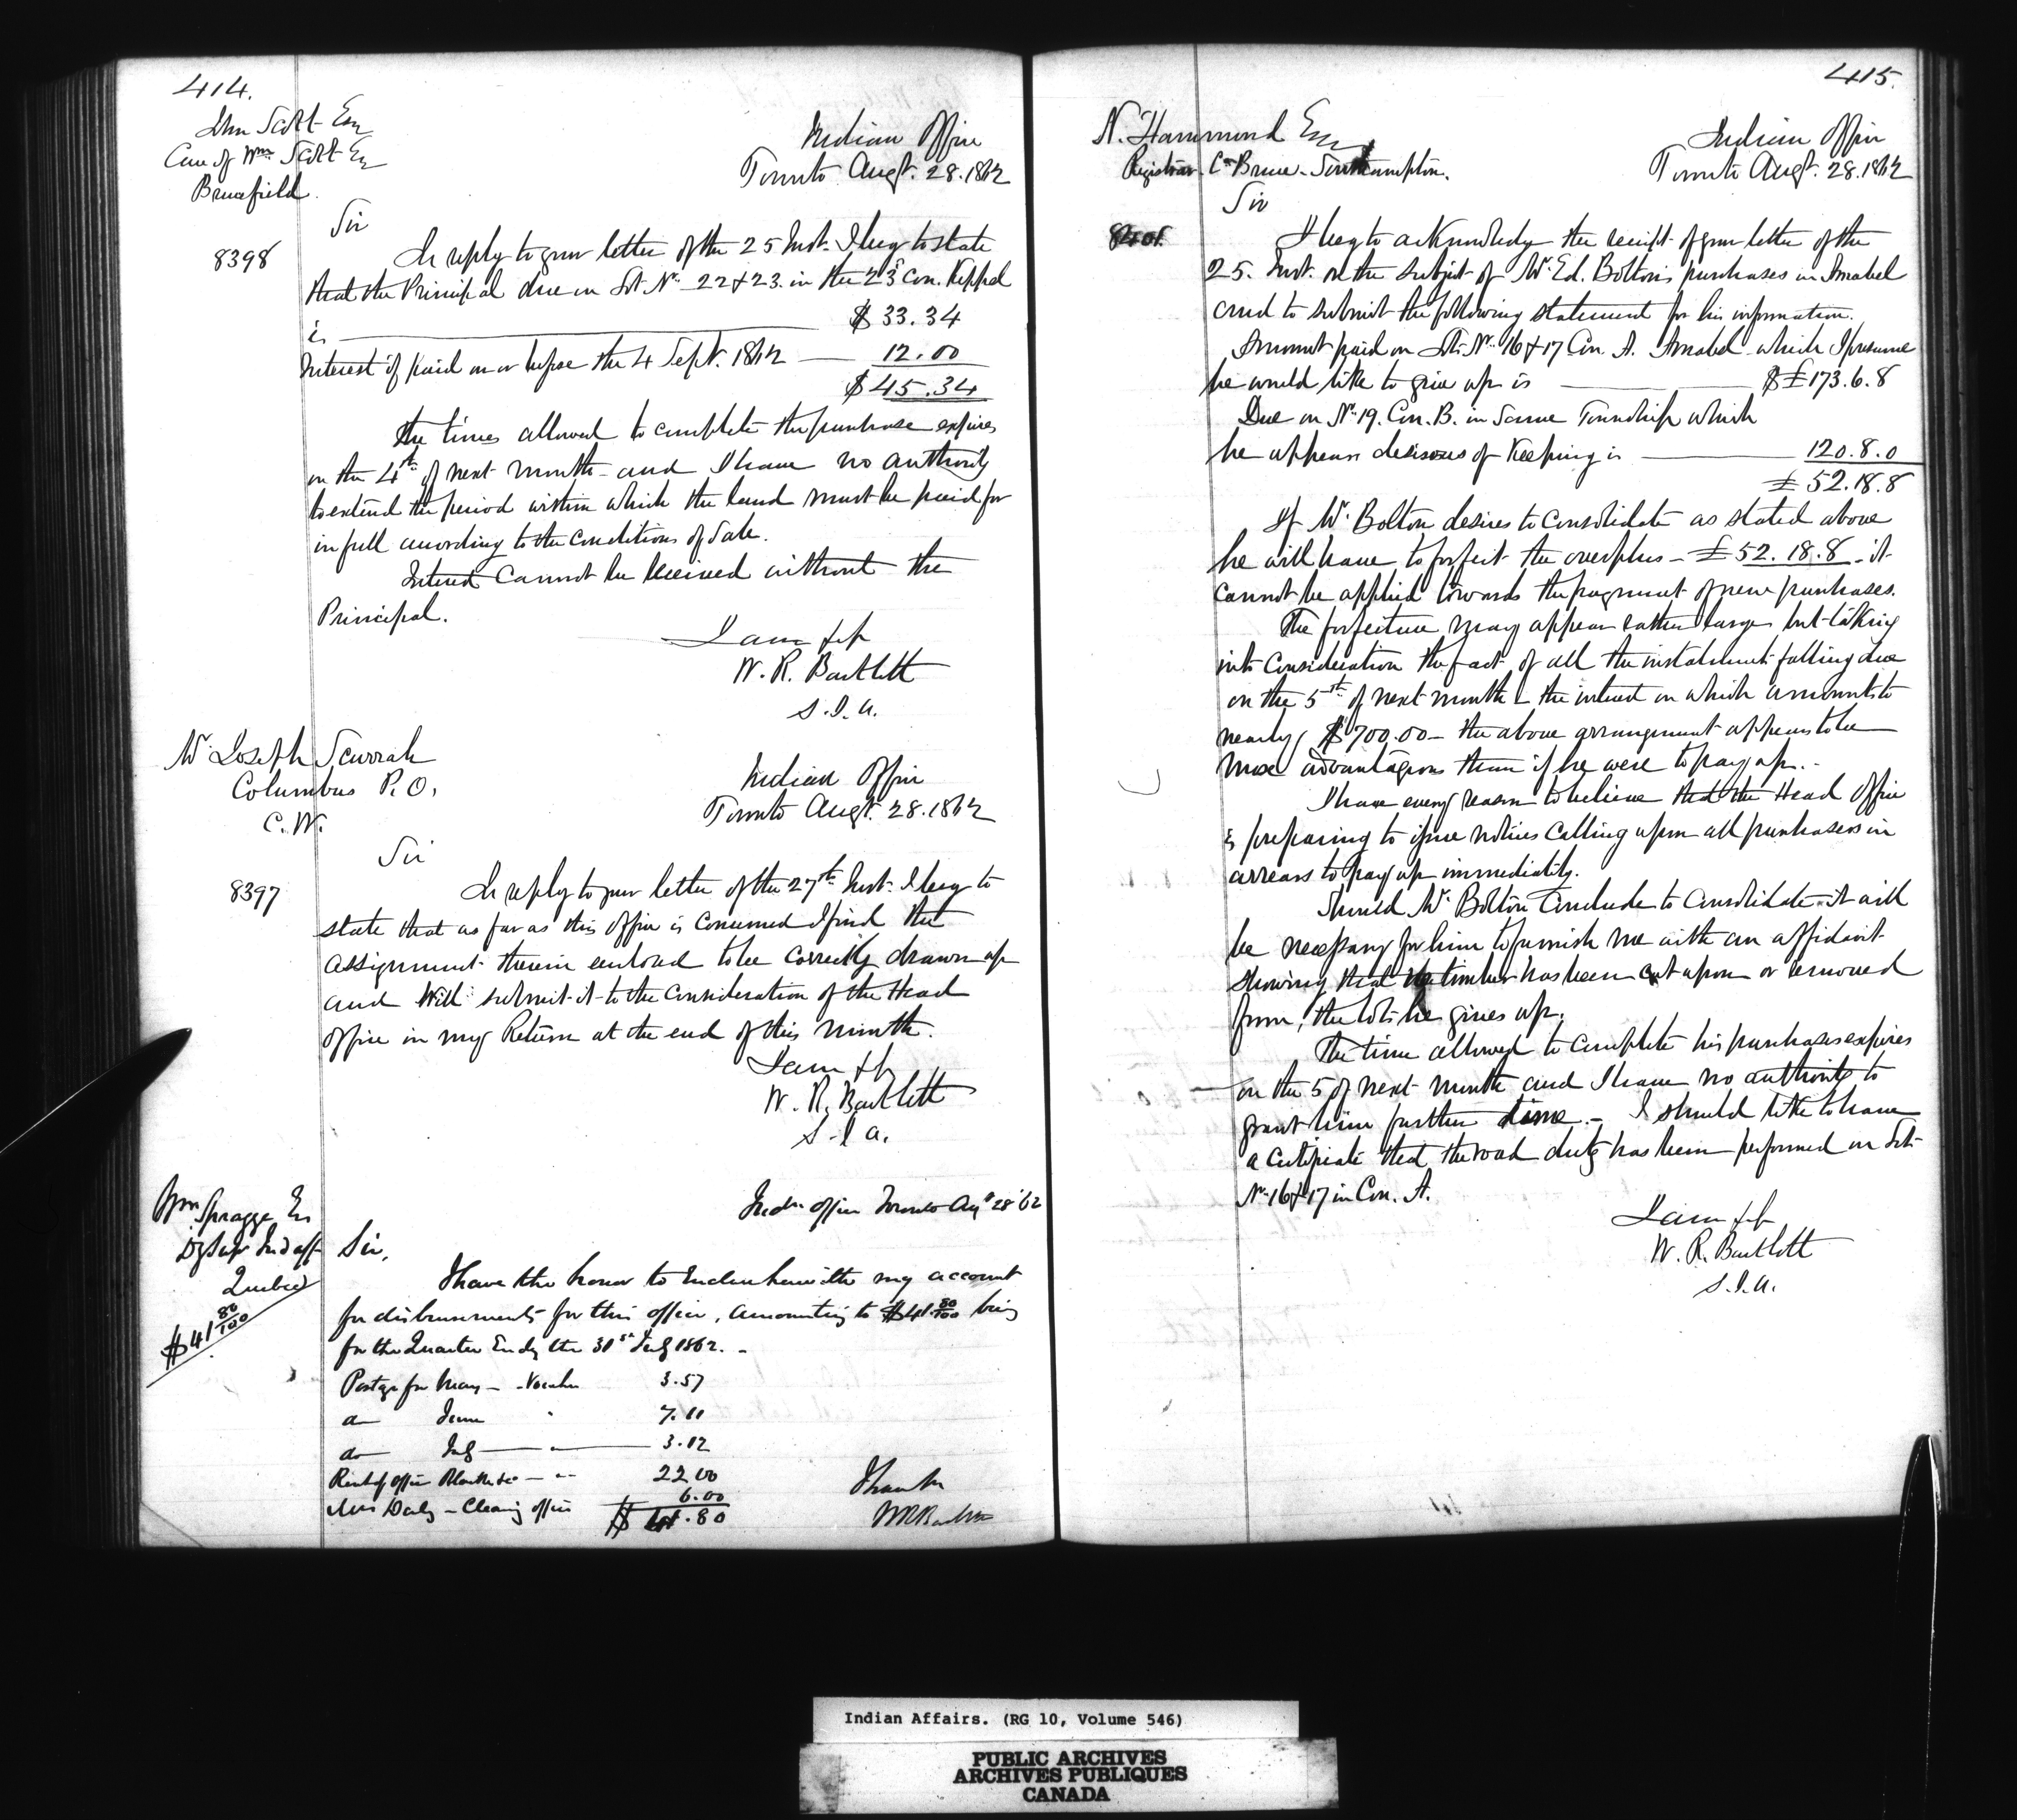 414.
John Scott Esq
Care of Wm Scott Esq
Brucefield.
Indian Office
Toronto Augt. 28. 1862
Sir
8398
In reply to your letter of the 25 Inst. I beg to state
that the Principal due on Lot No. 22 & 23. in the 23d Con. Keppel
is
$ 33.34
Interest if paid on or before the 4 Sept. 1862
12.00
$ 45.34
The times allowed to complete the purchase expires
on the 4th of next month - and I have no authority
to extend the period within which the land must be paid for
in full according to the Conditions of Sale.
Interest Cannot be received without the
Principal.
I am &c
W. R. Bartlett
S. I. A.
Mr Joseph Scurrah
Columbus P. O.
C. W.
Indian Office
Toronto Augt. 28. 1862
Sir
8397
In reply to your letter of the 27th Inst. I beg to
state that as far as this Office is concerned I find the
assignment therein enclosed to be correctly drawn up
and will submit it to the consideration of the Head
Office in my Return at the end of this month.
I am &c
W. R. Bartlett
S. I. A.
Wm Spragge Es
Dy Supr Ind aff
Quebec
$41 80/100
Indn. Office Toronto Augt 28 '62
Sir,
I have the honor to Enclose herewith my account
for disbursements for this office, amounting to $41.80/100 being
for the Quarter Endg the 31st July 1862. -
Postage for May - - Voucher 3.57
do June " 7.11
do July " 3.12
Rent of office 22 00
Mrs Daly - Cleaning office 6.00
$ 41.80
I have &c
WRBartlett
415.
N. Hammond Esq
Registrar. Co Bruce - Southampton.
Indian Office
Toronto Augt. 28. 1862
Sir
8401
I beg to acknowledge the receipt of your letter of the
25. Inst. on the subject of Mr. Ed. Bolton's purchases in Amabel
and to submit the following statement for his information.
Amount paid on Lots No. 16 & 17 Con. A. Amabel - which I presume
he would like to give up is £173.6.8
Due on No. 19. Con. B. in Same Township which
he appears desirous of Keeping is 120.8.0
£ 52.18.8
If Mr. Bolton desires to consolidate as stated above
he will have to forfeit the overplus - £52.18.8 - it
cannot be applied towards the payment of new purchases.
The forfeiture may appear rather large but taking
into consideration the fact of all the instalments falling due
on the 5th of next month - the interest on which amounts to
nearly $700.00 - the above arrangement appears to be
more advantageous than if he were to pay up. -
I have every reason to believe that the Head Office
is preparing to issue notices calling upon all purchasers in
arrears to pay up immediately.
Should Mr. Bolton Conclude to Consolidate it will
be necessary for him to furnish me with an affidavit
showing that no timber has been cut upon or removed
from, the lots he gives up.
The time allowed to complete his purchases expires
on the 5 of next month and I have no authority to
grant him further time. - I should like to have
a certificate that the road duty has been performed on Lots
No. 16 & 17 in Con. A.
I am &c
W. R. Bartlett
S. I. A.
Indian Affairs. (RG 10, Volume 546)
PUBLIC ARCHIVES
ARCHIVES PUBLIQUES
CANADA